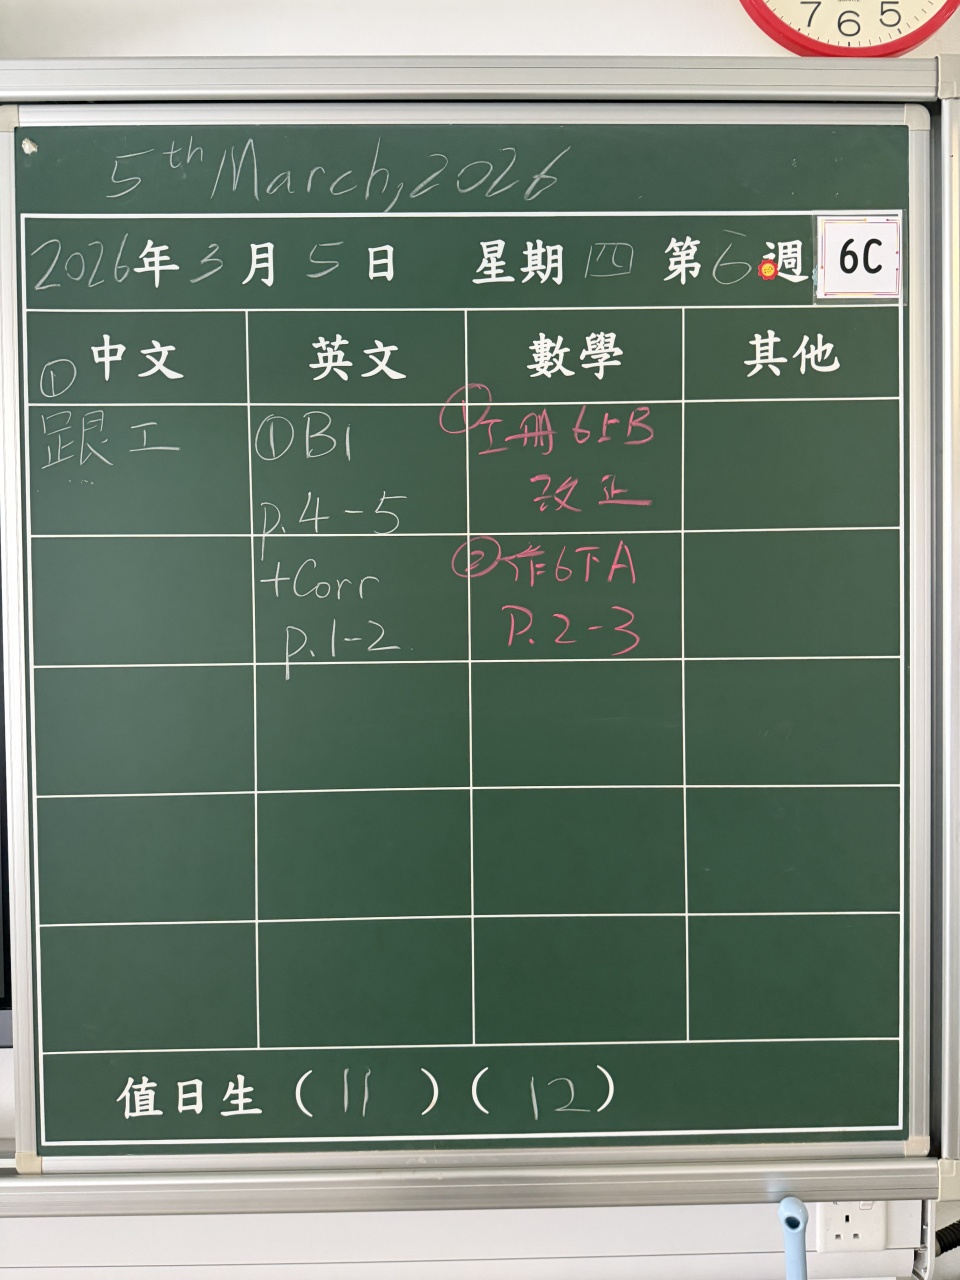 7 6 5
5th March, 2026
2026年3月5日 星期四 第6週 6C
中文 英文 數學 其他
①
跟工
①B1
p.4-5
+Corr
p.1-2
①工冊6上B
改正
②作6下A
P.2-3
值日生(11)(12)